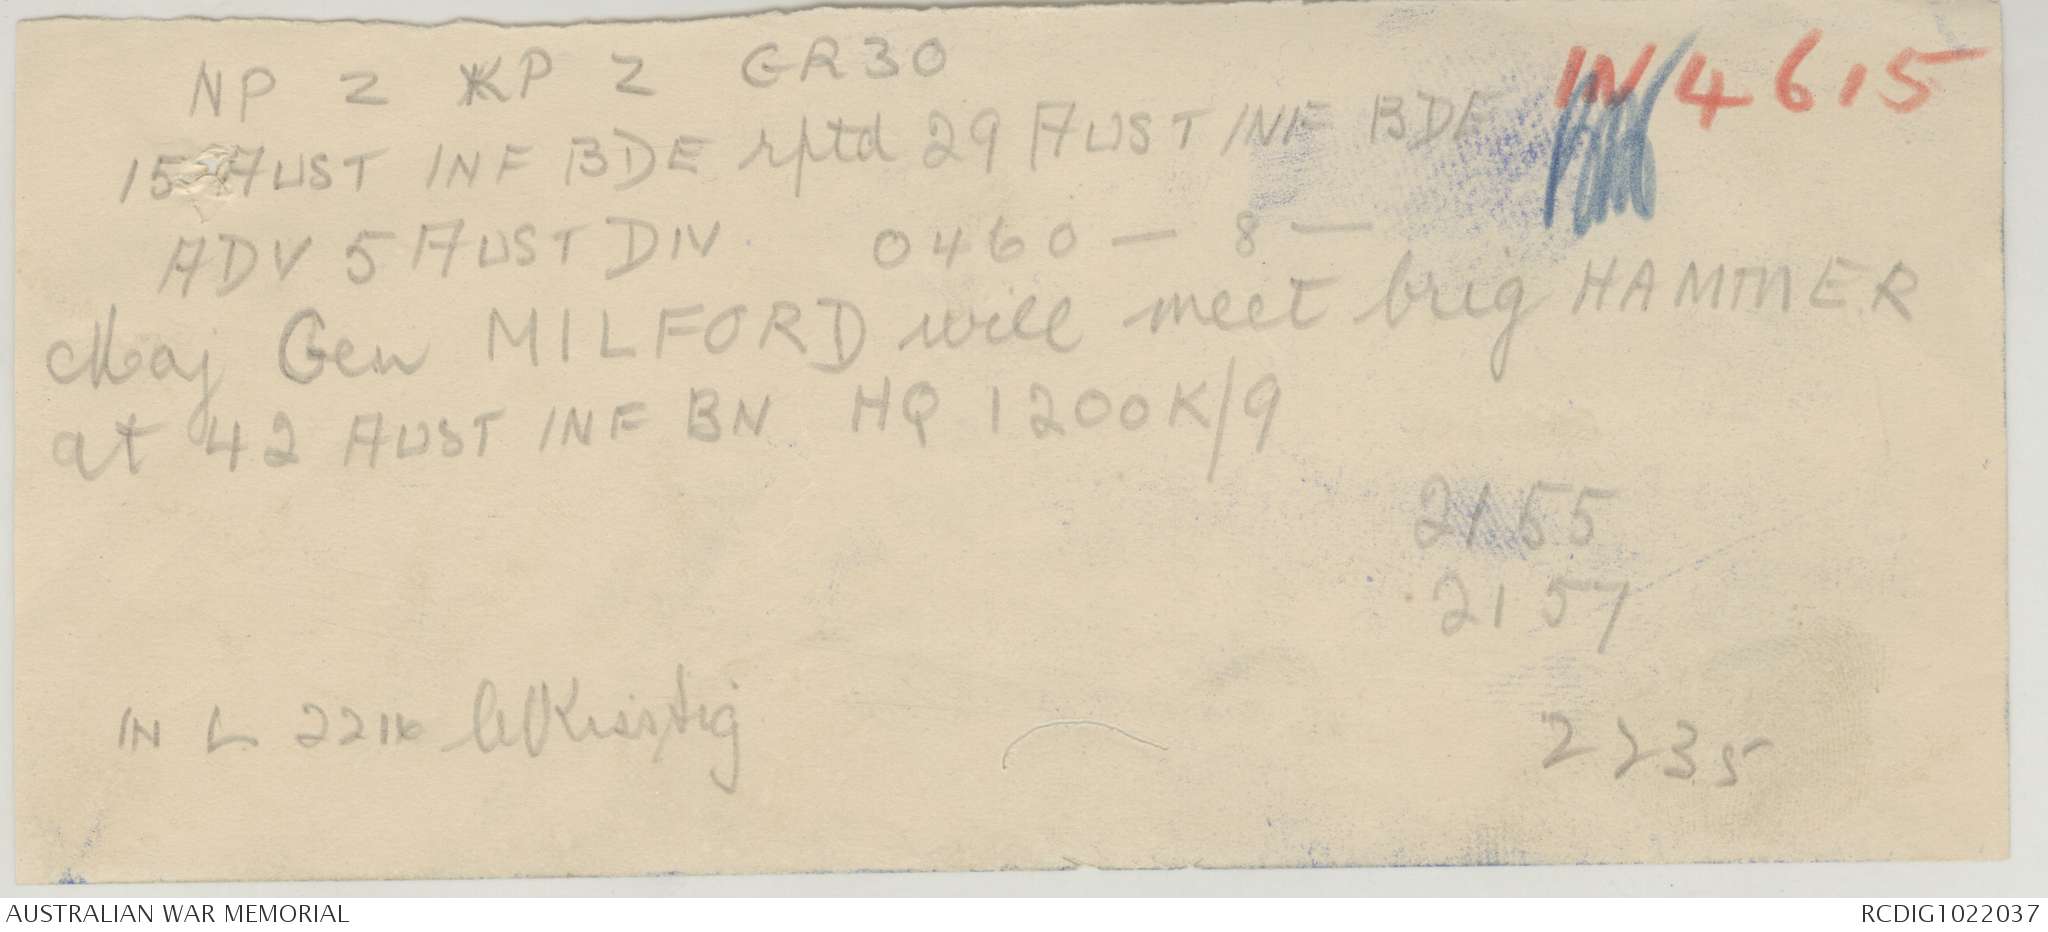 NP Z KP Z GR30 IN 4615
15 AUST INF BDE rptd 29 AUST INF BDE
ADV 5 AUST DIV 0460 — 8 —
Maj Gen MILFORD will meet brig HAMMER
at 42 AUST INF BN HQ 1200K/9
2155
2157
IN L 2235
AUSTRALIAN WAR MEMORIAL RCDIG1022037